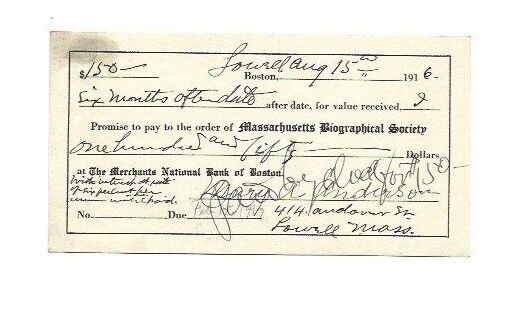 Lowell Aug 15
$150— Boston, 1916.
Six months after date after date, for value received, I
Promise to pay to the order of Massachusetts Biographical Society
one hundred and fifty Dollars
at The Merchants National Bank of Boston.
with interest at rate
of six per cent per
until paid.
Anderson
No. Due
414 Andover St.
Lowell Mass.